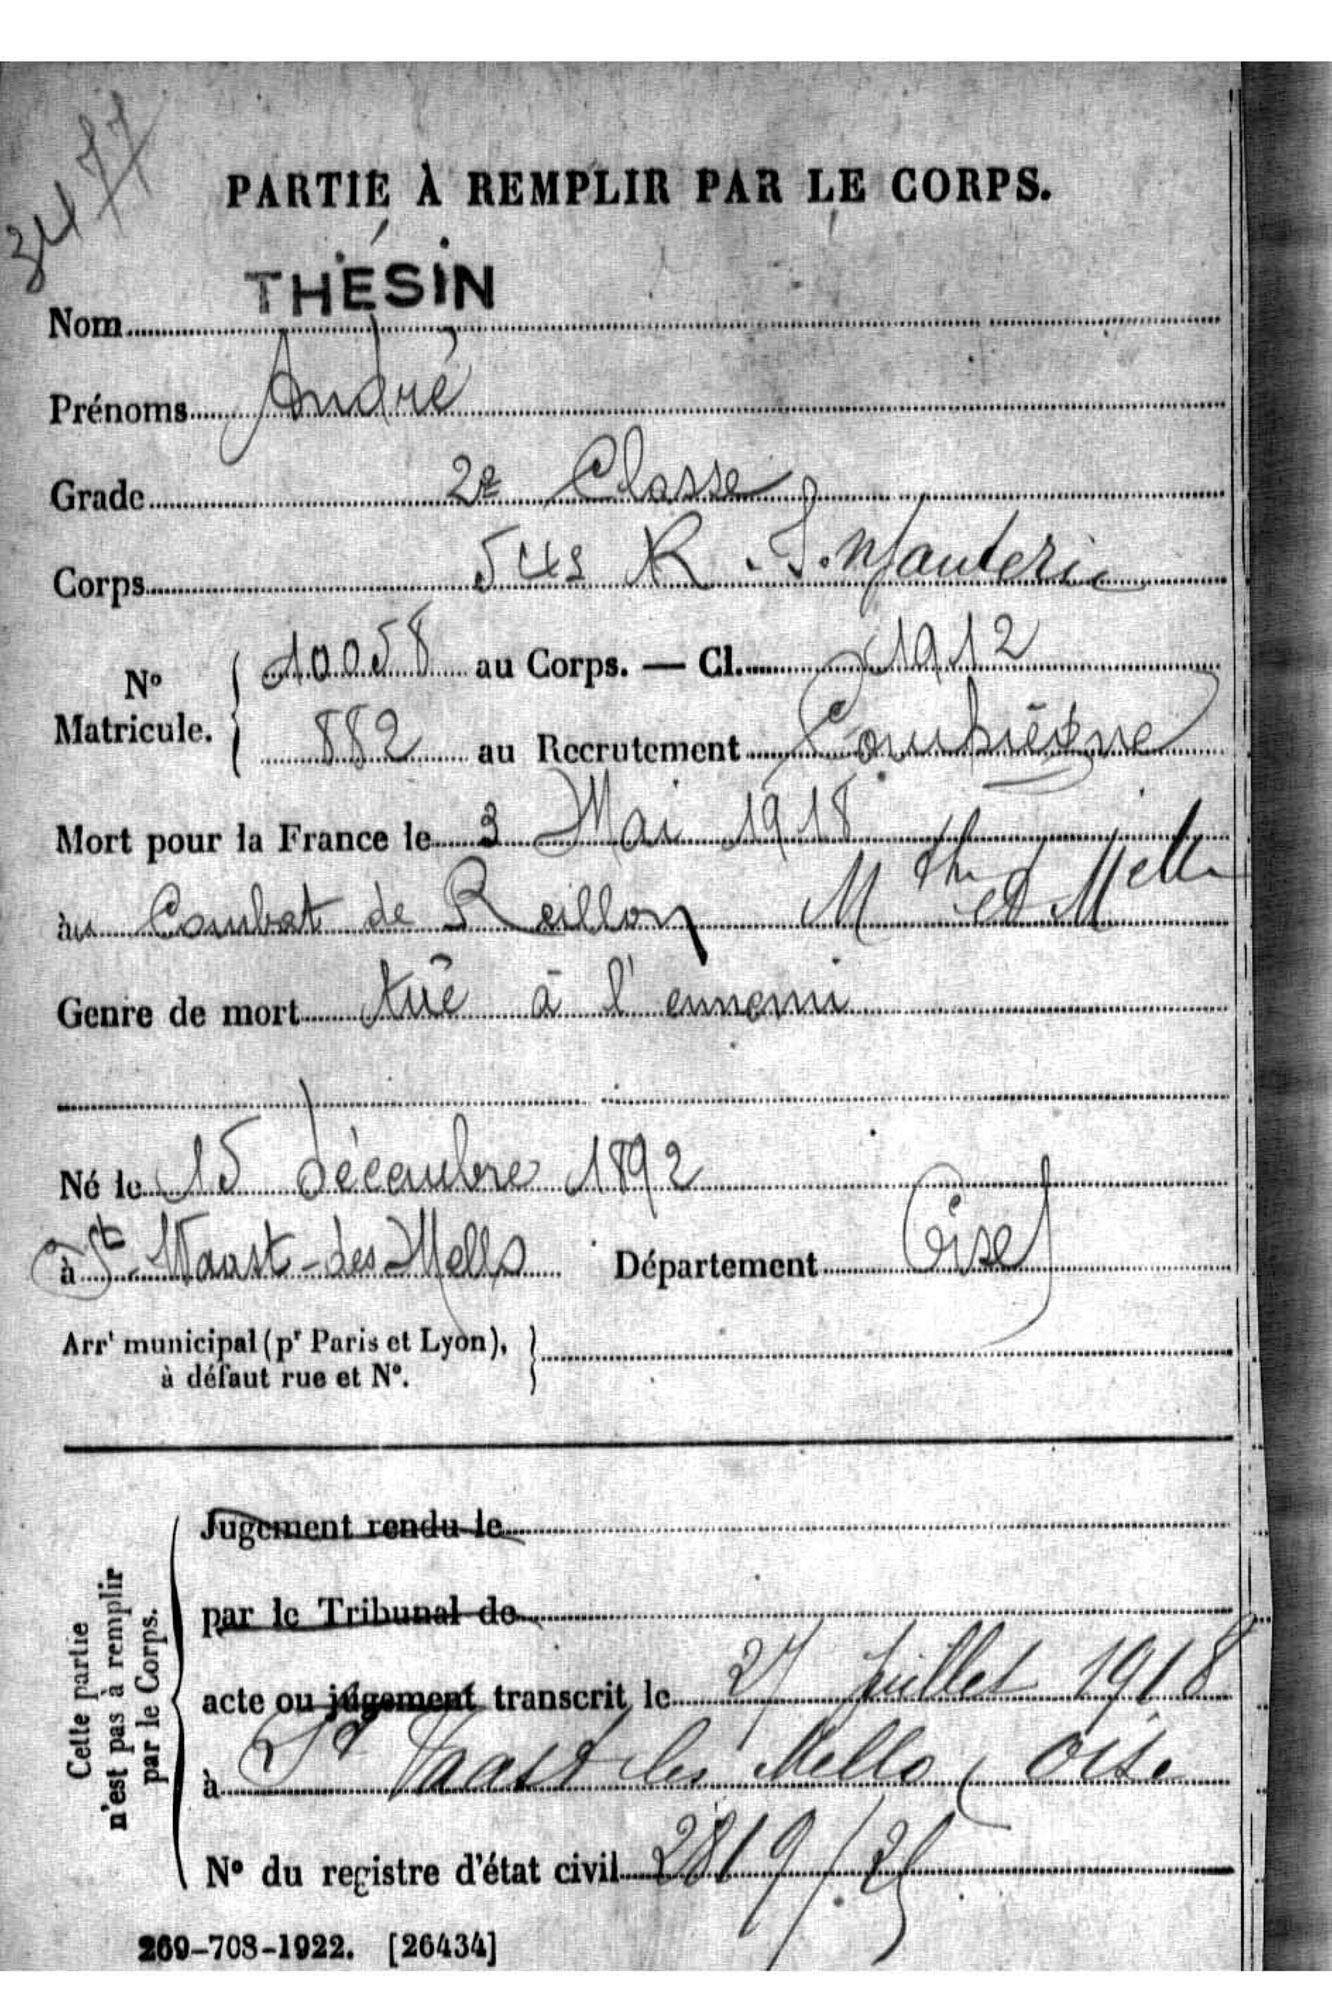 3477
PARTIE À REMPLIR PAR LE CORPS.
Nom THÉSIN
Prénoms André
Grade 2e Classe
Corps R. Infanterie
No Matricule. 10058 au Corps. — Cl. 1912
882 au Recrutement Compiègne
Mort pour la France le 3 Mai 1918
au Combat de Reillon Mthe et Melle
Genre de mort tué à l'ennemi
Né le 15 décembre 1892
à St-Waast-des-Mello Département Oise
Arrt municipal (pr Paris et Lyon),
à défaut rue et No.
Cette partie
n'est pas à remplir
par le Corps.
Jugement rendu le
par le Tribunal de
acte ou jugement transcrit le 27 juillet 1918
à St Vaast les Mello (Oise
No du registre d'état civil 2819/25
269-708-1922. [26434]